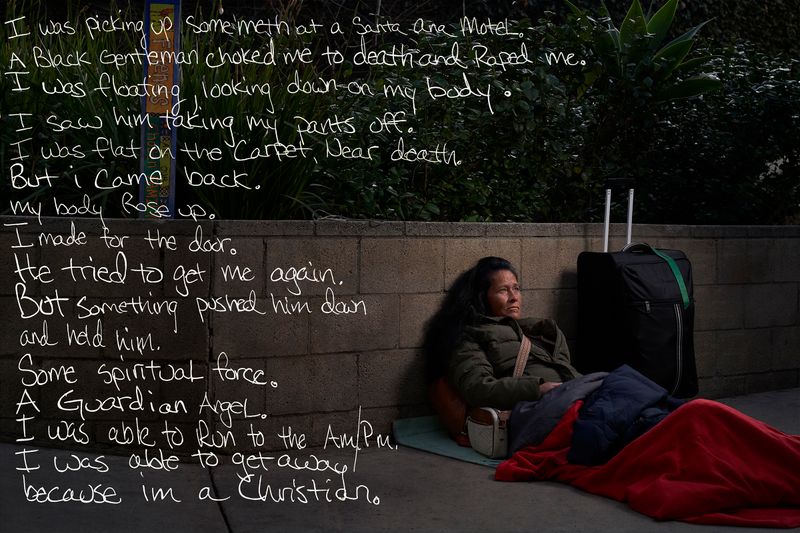 I was picking up some meth at a Santa Ana Motel.
A Black Gentleman choked me to death and Raped me.
I was floating, looking down on my body.
I saw him taking my pants off.
I was flat on the Carpet, Near death.
But i Came back.
my body Rose up.
I made for the door.
He tried to get me again.
But something pushed him down
and held him.
Some spiritual force.
A Guardian Angel.
I was able to Run to the Am/Pm.
I was able to get away
because im a Christian.